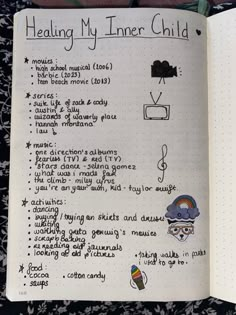 Healing My Inner Child
* movies:
• high school musical (2006)
• barbie (2023)
• teen beach movie (2013)
* series:
• suite life of zack & cody
• austin & ally
• wizards of waverly place
• hannah montana
* music:
• one direction's albums
• fearless (TV) & red (TV)
• stars dance - selena gomez
• what was i made for
• the climb - miley cyrus
• you're on your own, kid - taylor swift
* activities:
• dancing
• buying / trying on skirts and dresses
• writing
• watching greta gerwig's movies
• scrapbooking
• re reading old journals
• looking at old pictures
• taking walks in parks
i used to go to.
* food:
• cocoa • cotton candy
• soups